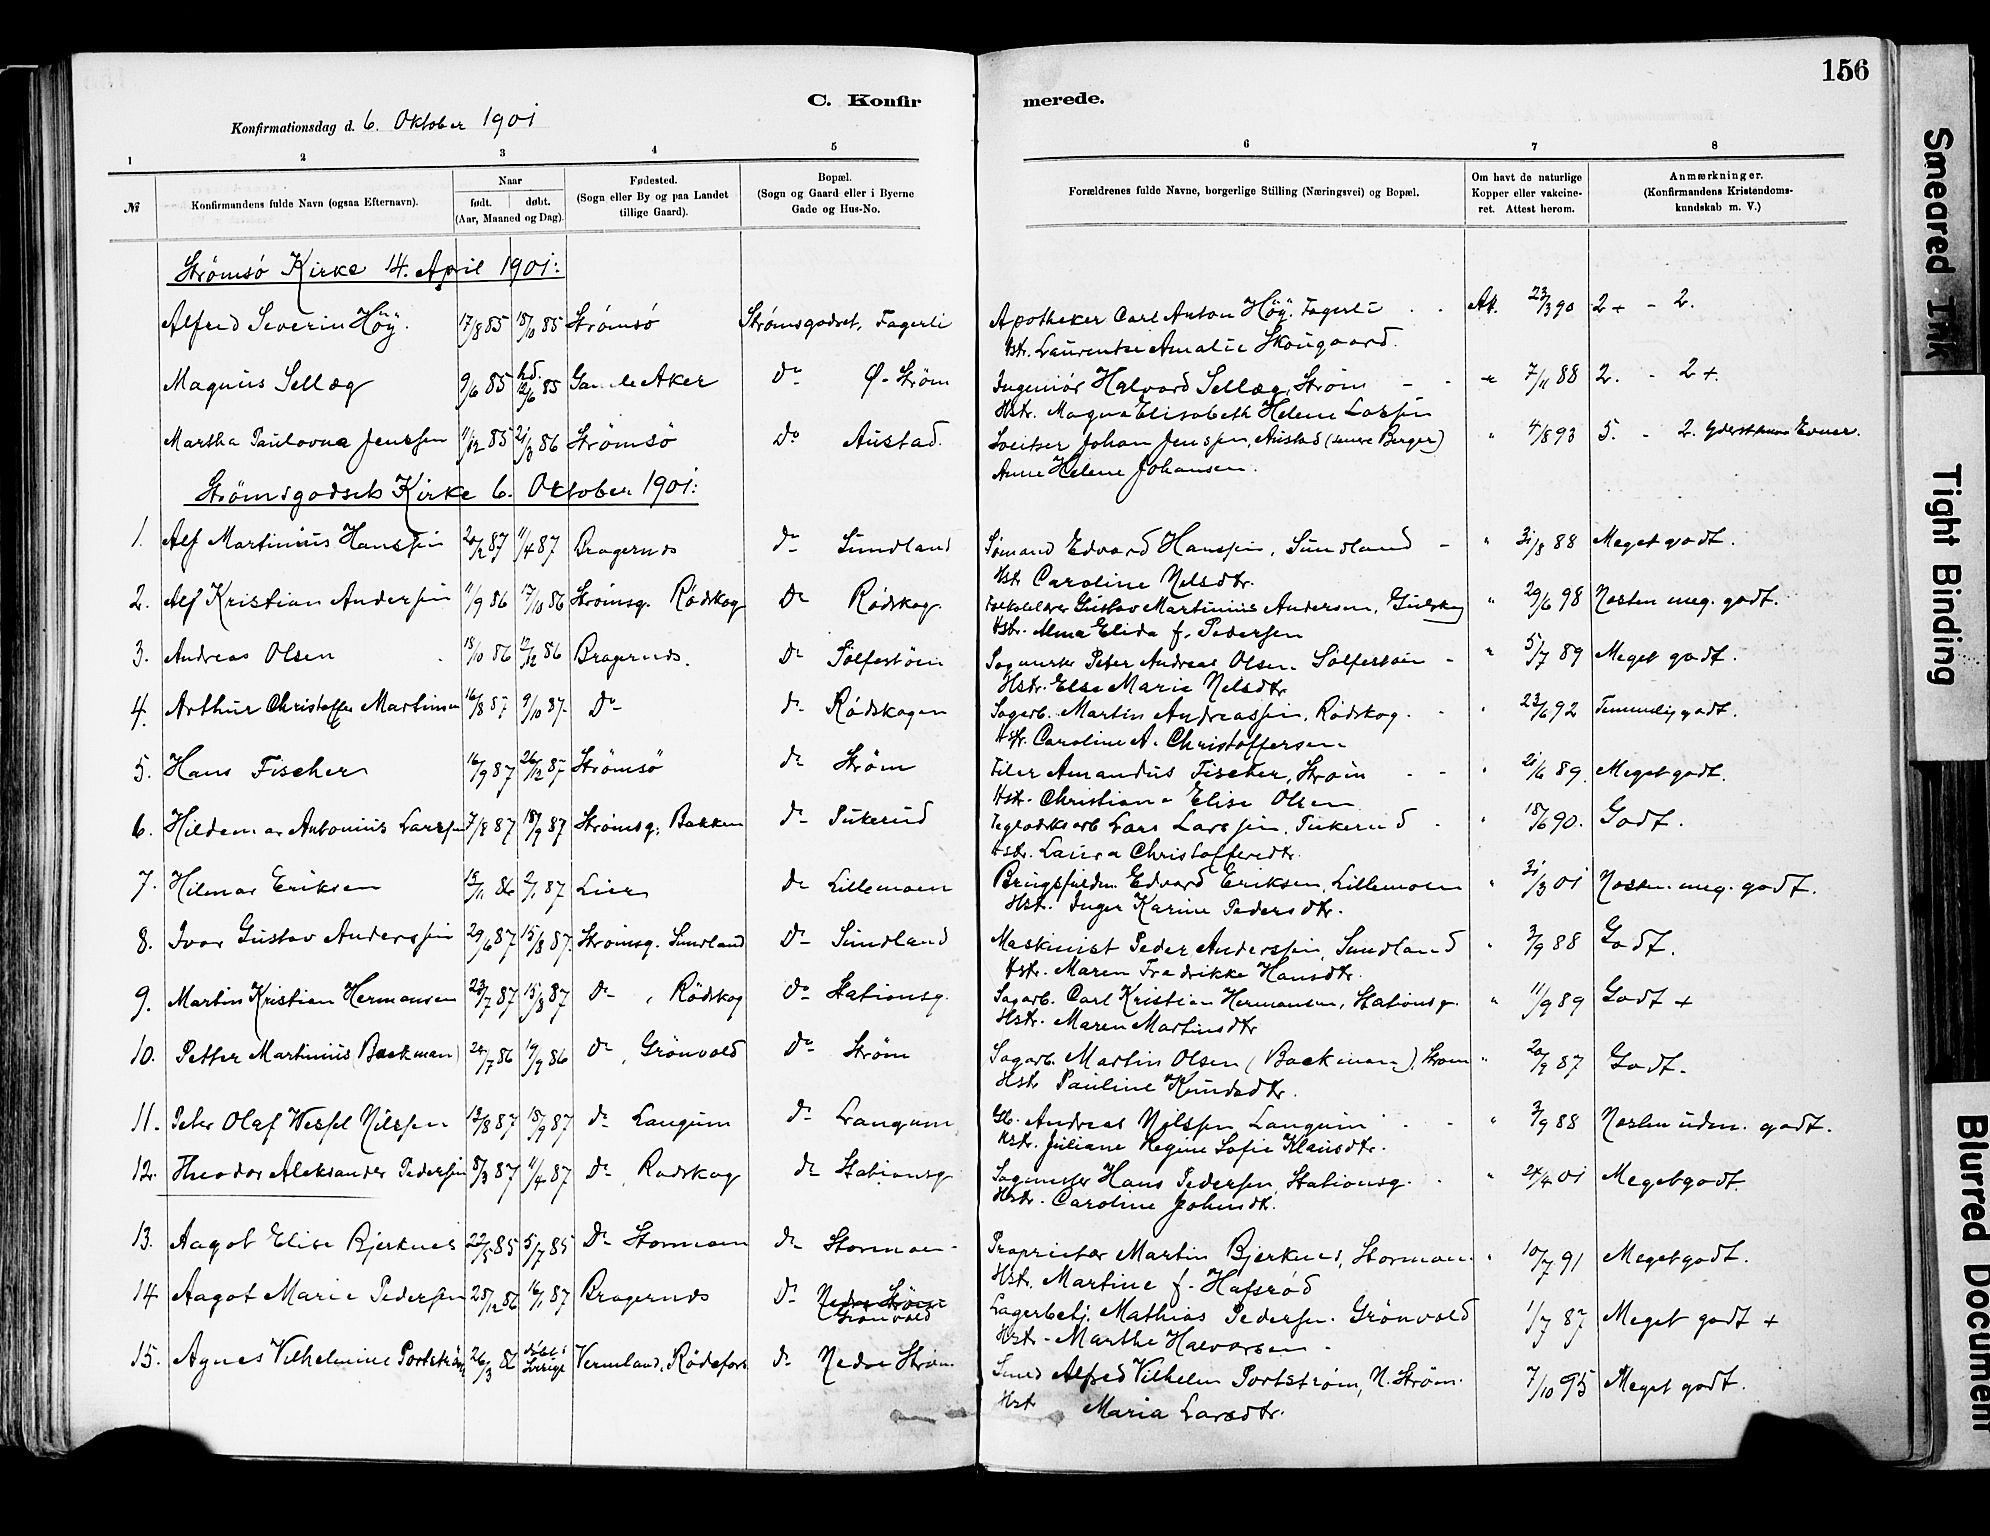 156
C. Konfir merede.
Konfirmationsdag d. 6. Oktober 1901
1 2 3 4 5 6 7 8
№ Konfirmandens fulde Navn (ogsaa Efternavn). Naar født. døbt. (Aar, Maaned og Dag). Fødested. (Sogn eller By og paa Landet tillige Gaard). Bopæl. (Sogn og Gaard eller i Byerne Gade og Hus-No. Forældrenes fulde Navne, borgerlige Stilling (Næringsvei) og Bopæl. Om havt de naturlige Kopper eller vakcineret. Attest herom. Anmærkninger. (Konfirmandens Kristendomskundskab m. V.)
Strømsø Kirke 14. April 1901:
Alfred Severin Höy. 17/8 85 18/10 85 Strømsø Strømsgodset, Fagerli Apotheker Carl Anton Höy. Fagerli Att. 23/3 90 2+ - 2.
Hstr. Laurentse Amalie Skougaard.
Magnus Sellæg 9/6 85 hd. 12/6 85 Gamle Aker do Ø. Strøm Ingeniör Halvard Sellæg, Strøm 7/11 88 2. - 2+.
Hstr. Magna Elisabeth Helene Larsen
Martha Paulovna Jenssen 11/12 85 21/3 86 Strømsø do Austad. Sveitser Johan Jenssen, Austad (senere Berger) " 4/8 93 5. - 2.
Anne Helene Johansen.
Strømsgodsets Kirke 6. Oktober 1901:
1. Alf Martinius Hanssen 20/2 87 11/4 87 Bragernæs do Sundland Sømand Edvard Hanssen, Sundland - " 31/8 88 Meget godt.
Hst. Caroline Nelsdtr.
2. Alf Kristian Anderssen 11/9 86 17/10 86 Strømsg. Rødskog Do Rødskog Gustav Martinius Andersen, Gulskog " 29/6 98 Næsten meg. godt.
Hstr. Alma Elida f. Pedersen
3. Andreas Olsen 18/10 86 12/12 86 Bragernæs. do Sølfestøen Sagmester Peter Andreas Olsen. Sølfestøen - " 5/7 89 Meget godt.
Hstr. Else Marie Nelsdtr
4. Arthur Christoffer Martinsen 16/8 87 9/10 87 Do do Rødskogen Sagarb. Martin Andreassen, Rødskog. " 23/6 92 Temmelig godt.
Hstr. Caroline A. Christoffersen
5. Hans Fischer 16/9 87 26/12 87 Strømsö do Strøm Filer Amandus Fischer, Strøm " 21/6 89. Meget godt.
Hstr. Christiane Elise Olsen
6. Hildemar Antonius Larssen 7/8 87 18/9 87 Strømsg. Bakken do Pukerud Teglværksarb Lars Larssen, Pukerud " 18/6 90. Godt.
Hstr. Laura Christoffersdtr.
7. Hilmar Eriksen 13/11 86 2/1 87 Lier do Lillemoen Brugsfuldm. Edvard Eriksen, Lillemoen " 31/3 01 Næsten meg. godt.
Hstr. Inger Karine Pedersdtr.
8. Ivar Gustav Anderssen 29/6 87 15/8 87 Strømsg. Sundland Do Sundland Maskinist Peder Anderssen, Sundland " 3/9 88 Godt.
Hstr. Maren Fredrikke Hansdtr.
9. Martin Kristian Hermansen 23/7 87 15/8 87 do, Rødskog do Stationsg. Sagarb. Carl Kristian Hermansen, Stationsg. " 11/9 89 Godt +
Hstr. Maren Martinsdtr
10. Petter Martinius (Backman) 24/7 86 19/9 86 do, Grönvold do Strøm Sagarb. Martin Olsen (Backman), Strøm " 20/9 87 Godt.
Hstr Pauline Knudsdtr.
11. Peter Olaf Wessel Nilssen 13/8 87 18/9 87 do Langum do Langum Gb. Andreas Nilssen Langum " 3/9 88 godt.
Hstr. Juliane Regine Sofie Klausdtr.
12. Theodor Aleksander Pedersen 8/3 87 11/4 87 do, Rødskog do Stationsg Sagmester Hans Pedersen, Stationsg. " 24/4 01 Meget godt.
Hstr. Caroline Johnsdtr.
13. Aagot Elise Bjerknes 22/5 85 5/7 85 do Stormoen do Stormoen Proprietær Martin Bjerknes, Stormoen. " 10/7 91 Meget godt.
Hstr. Martine f. Hafsrød
14 Aagot Marie Pedersen 28/12 86 16/1 87 Bragernæs do Nedre Strøm Grönvold Lagerbetj. Mathias Pedersen. Grönvold 1/7 87 Meget godt +
Hstr. Marthe Halvorsen.
15. Agnes Vilhelmine Portström 26/3 86 døbt i Sverige Vermland, Rödefors do Nedre Strøm Smed Alfred Vilhelm Portstrøm, N. Strøm. 7/10 95 Meget godt.
Hstr Maria Larsdtr.
Smeared Ink
Tight Binding
Blurred Document